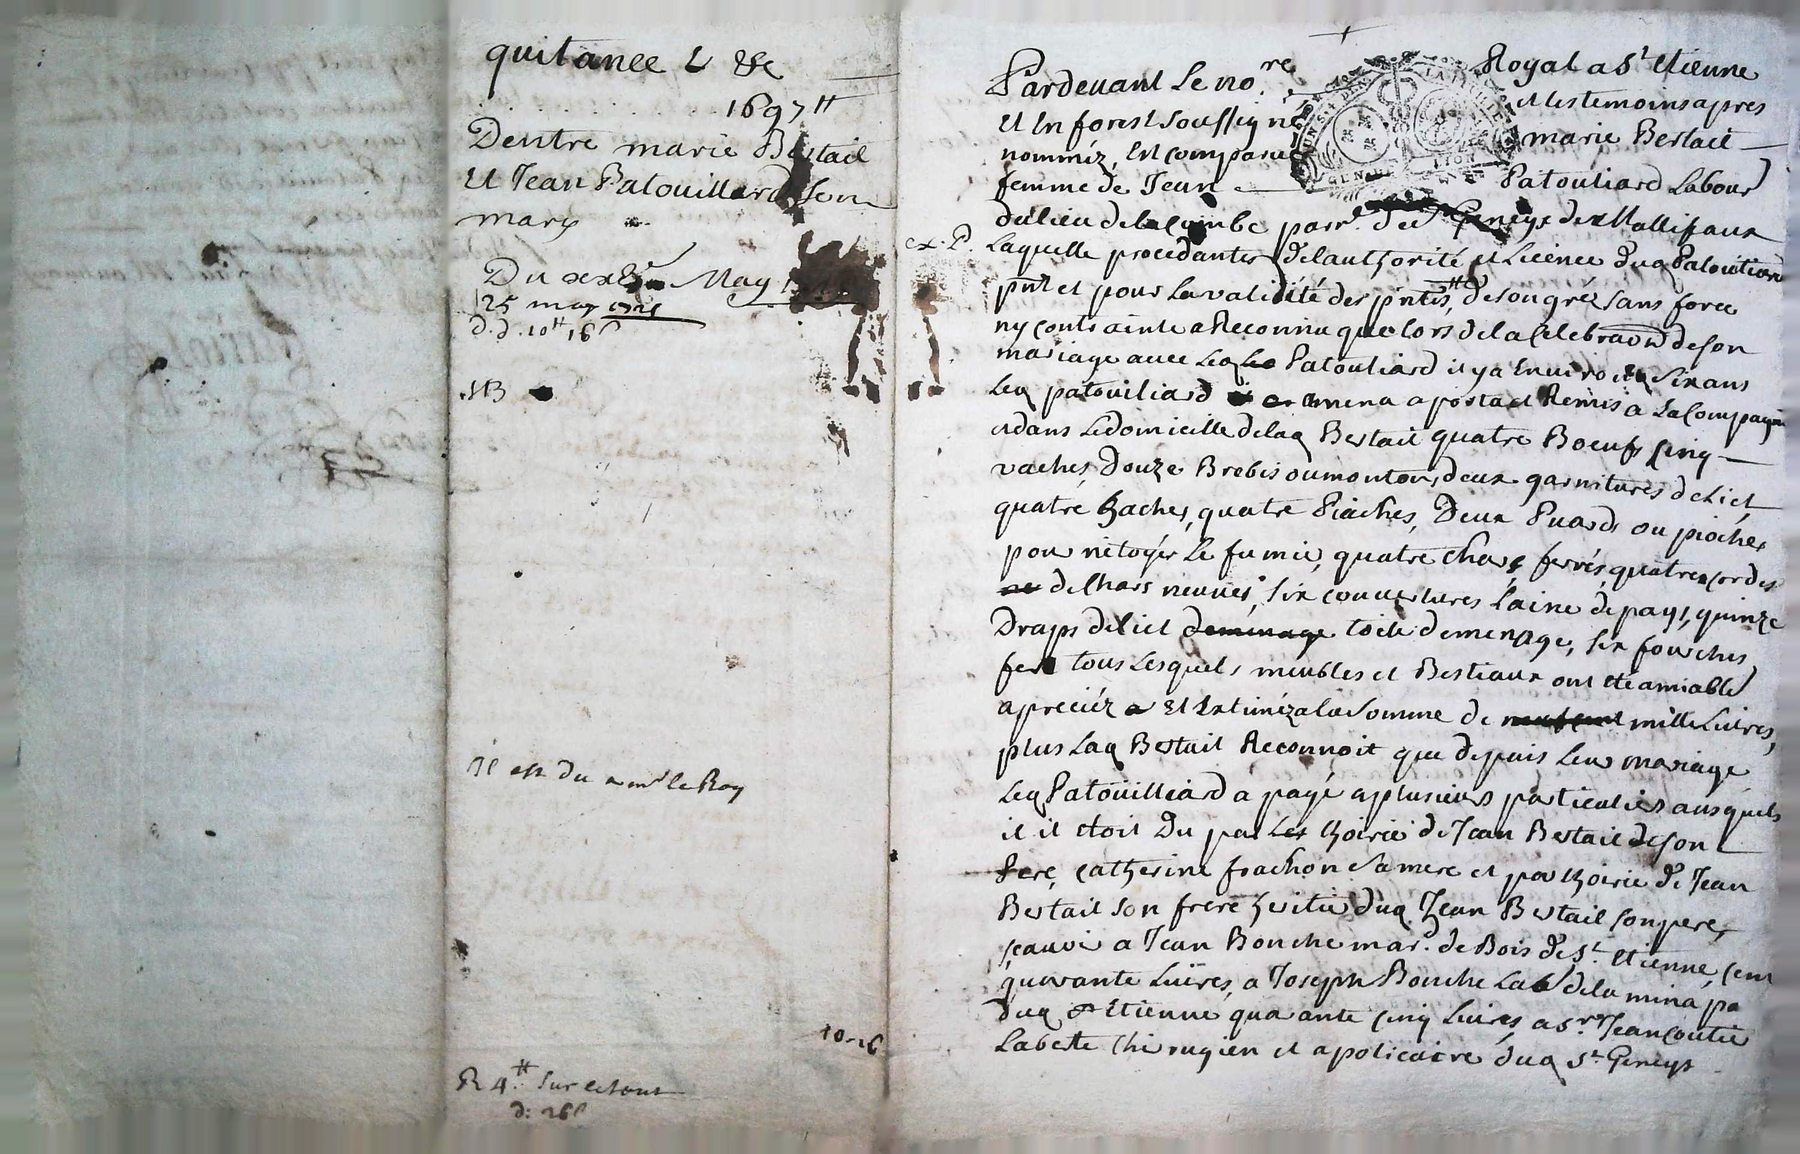 quitance
1697 tt
Dentre marie Bertail
Et Jean Patouillard son
mary
Du May
25 may
d. d. 10 tt 16
NB
Il est du a mr le Roy
10-16
R 4 tt sur
d: 26
Pardevant Le no.re Royal a St Etienne
Et En forest soussigné et les temoins apres
nomméz, Est comparue marie Bertail
femme de Jean Patouliard Labour
du lieu de la Combe parr. de St Geneys de Mallifaux
Laquelle procedantes de lauthorité et Licence duq Patouliard
pnt et pour La validité des pntes, de son gré sans force
ny contrainte a Reconnu que lors de la Celebraon de son
mariage avec Leq Patouliard il y a Environ Six ans
Leq patouiliard amena aporta et Remis a La Compagnie
et dans Ledomicille de laq Bertail quatre Boeufs Cinq
vaches, Douze Brebis ou mouton, deux garnitures de Lict,
quatre haches, quatre Piaches, Deux Puards ou pioches
pour nétoyer Le fumie, quatre Chars ferrés, quatre cordes
de Chars neuves, Six couvertures Laine de pays, quinze
Draps de lict demenage toile de menage, six fourches
fer tous Lesquels meubles et Bestiaux ont eté amiable
apreciéz Et Estiméz a la Somme de mille Livres,
plus Laq Bertail Reconnoit que depuis Leur mariage
Leq Patoüilliard a payé a plusieurs particuliers ausquels
il il etoit Du par Les hoirie de Jean Bertail de son
Pere, Catherine frachon Sa mere et par hoirie de Jean
Bertail son frere heritie duq Jean Bertail son pere,
scavoir a Jean Bonche mar.d de Bois de St Etienne, Cent
quarante Livres, a Joseph Bonche Lab de la mina par
duq St Etienne quarante Cinq Livres, a Sr Jean
Labeste Chirurgien et apoticaire duq St Geneys